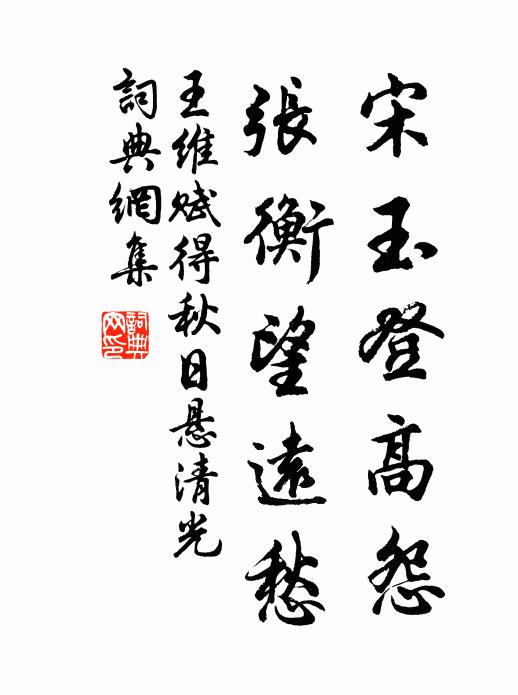 宋玉登高怨
張衡望遠愁
王維賦得秋日悬清光
詞典網集
詞典網印